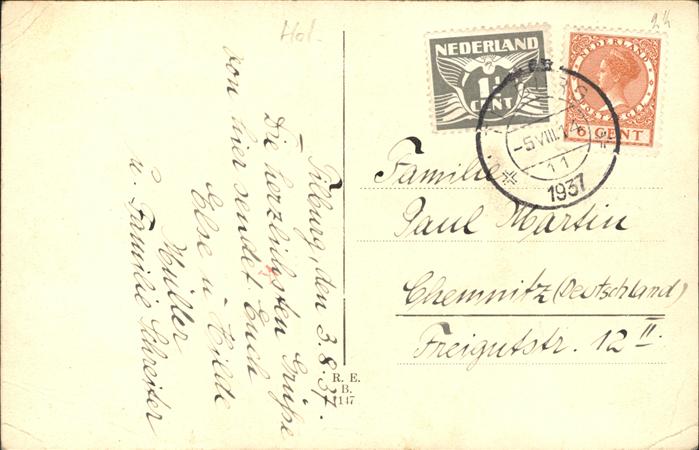 Hol.
2½
Tilburg, den 3.8.37.
Die herzlichsten Grüße
von hier sendet Euch
Else u. Hilde
Müller
u. Familie Schreiter
NEDERLAND
1½
CENT
NEDERLAND
6
CENT
-5.VIII.
11
1937
Familie
Paul Martin
Chemnitz (Deutschland)
Freigutstr. 12 II.
R. E.
B.
1147